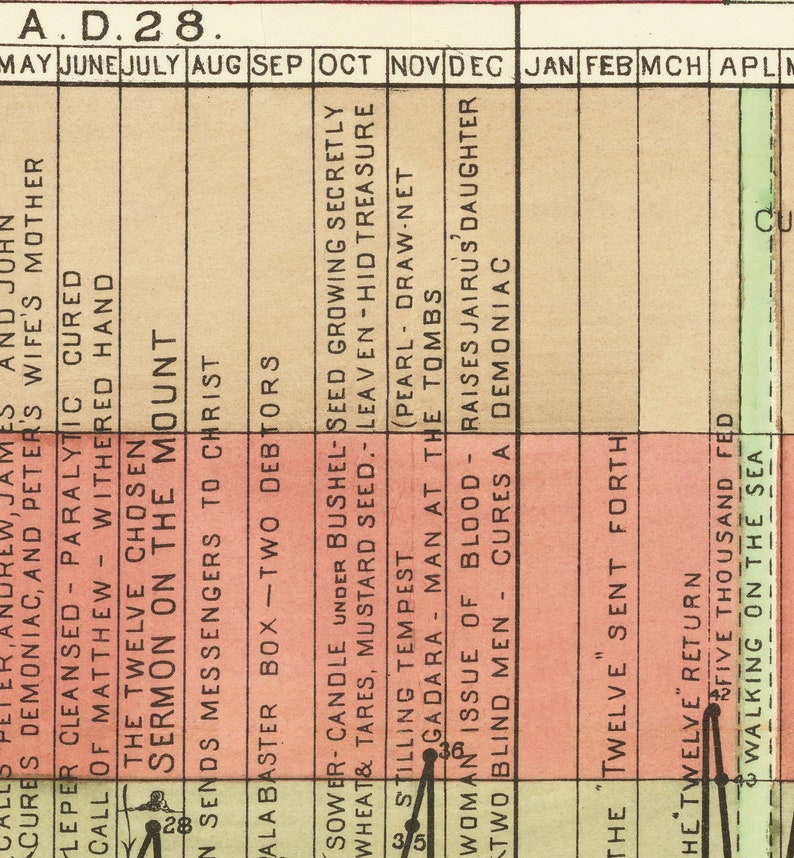 A.D.28.
MAY JUNE JULY AUG SEP OCT NOV DEC JAN FEB MCH APL
PETER, ANDREW, JAMES AND JOHN
CURES DEMONIAC, AND PETER'S WIFE'S MOTHER
LEPER CLEANSED - PARALYTIC CURED
CALL OF MATTHEW - WITHERED HAND
THE TWELVE CHOSEN
SERMON ON THE MOUNT
28
SENDS MESSENGERS TO CHRIST
ALABASTER BOX — TWO DEBTORS
(SOWER - CANDLE UNDER BUSHEL - SEED GROWING SECRETLY
WHEAT & TARES, MUSTARD SEED. - LEAVEN - HID TREASURE
(PEARL - DRAW-NET
STILLING TEMPEST
GADARA - MAN AT THE TOMBS
36
35
WOMAN ISSUE OF BLOOD - RAISES JAIRUS' DAUGHTER
TWO BLIND MEN - CURES A DEMONIAC
THE "TWELVE" SENT FORTH
"TWELVE" RETURN
FIVE THOUSAND FED
42
43
WALKING ON THE SEA